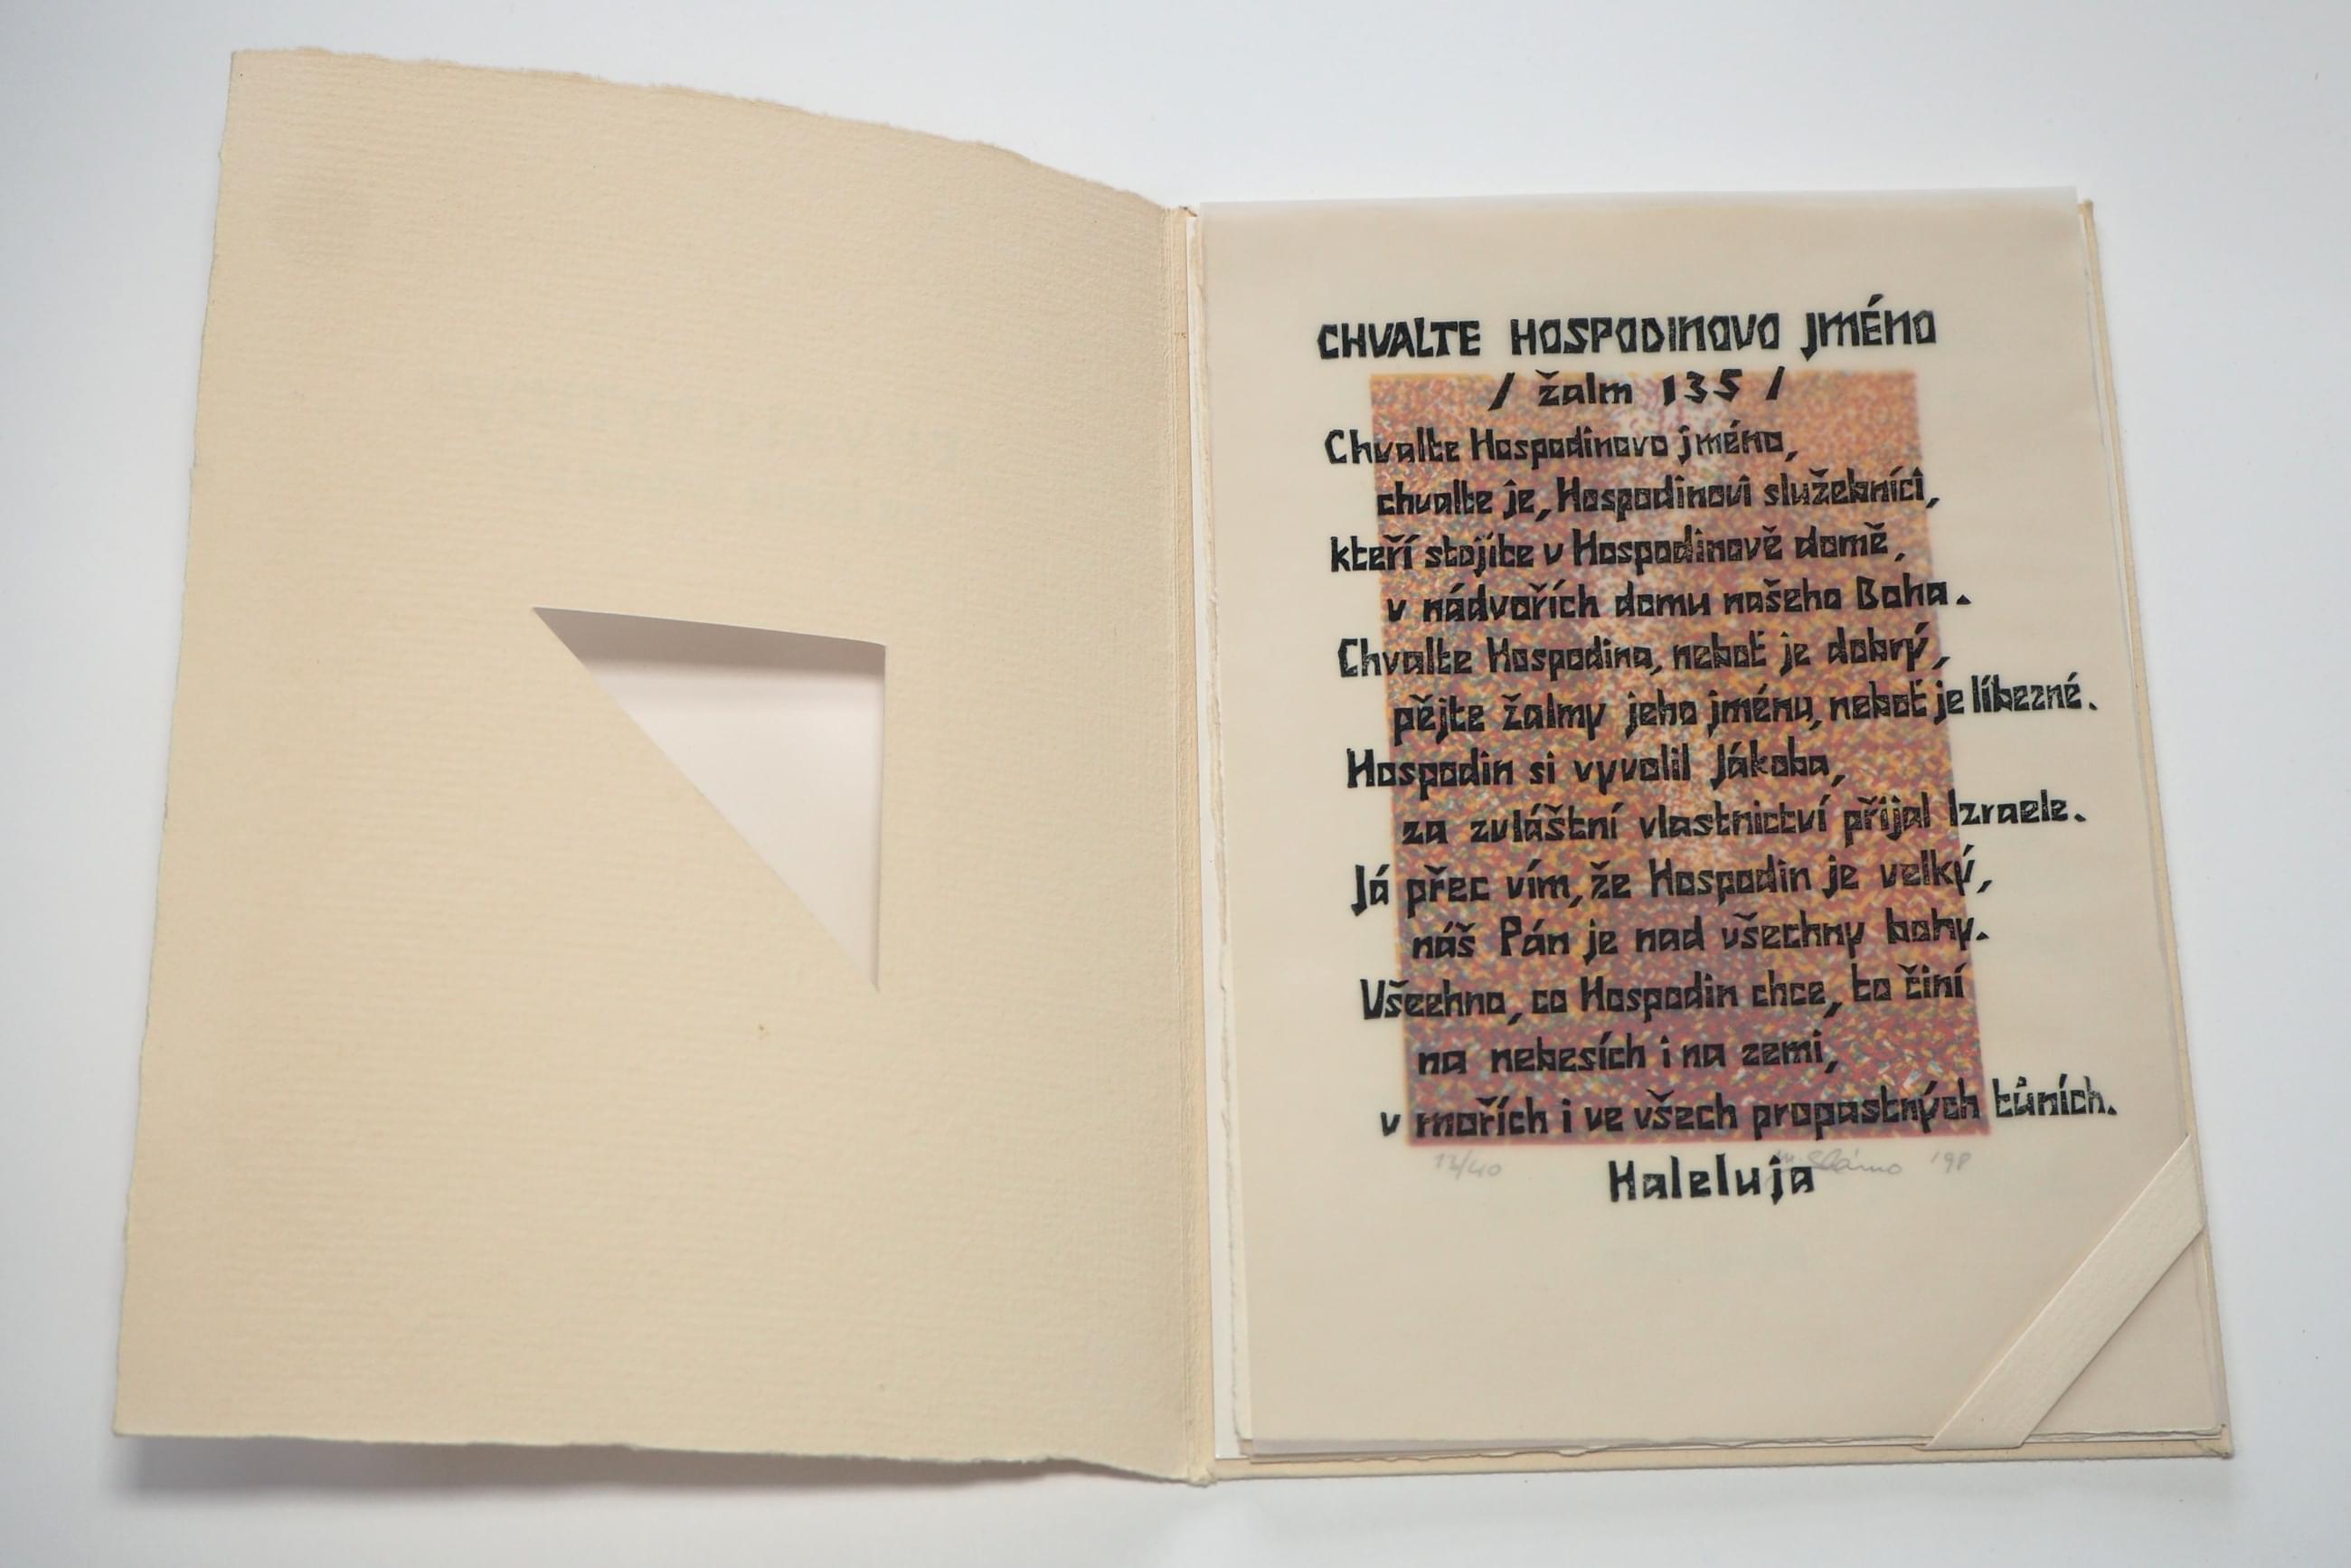 CHVALTE HOSPODINOVO JMÉNO
/ žalm 135 /
Chvalte Hospodinovo jméno,
chvalte je, Hospodinovi služebníci,
kteří stojíte v Hospodinově domě,
v nádvořích domu našeho Boha.
Chvalte Hospodina, neboť je dobrý,
pějte žalmy jeho jménu, neboť je líbezné.
Hospodin si vyvolil Jákoba,
za zvláštní vlastnictví přijal Izraele.
Já přec vím, že Hospodin je velký,
náš Pán je nad všechny bohy.
Všechno, co Hospodin chce, to činí
na nebesích i na zemi,
v mořích i ve všech propastných tůních.
Haleluja
'98